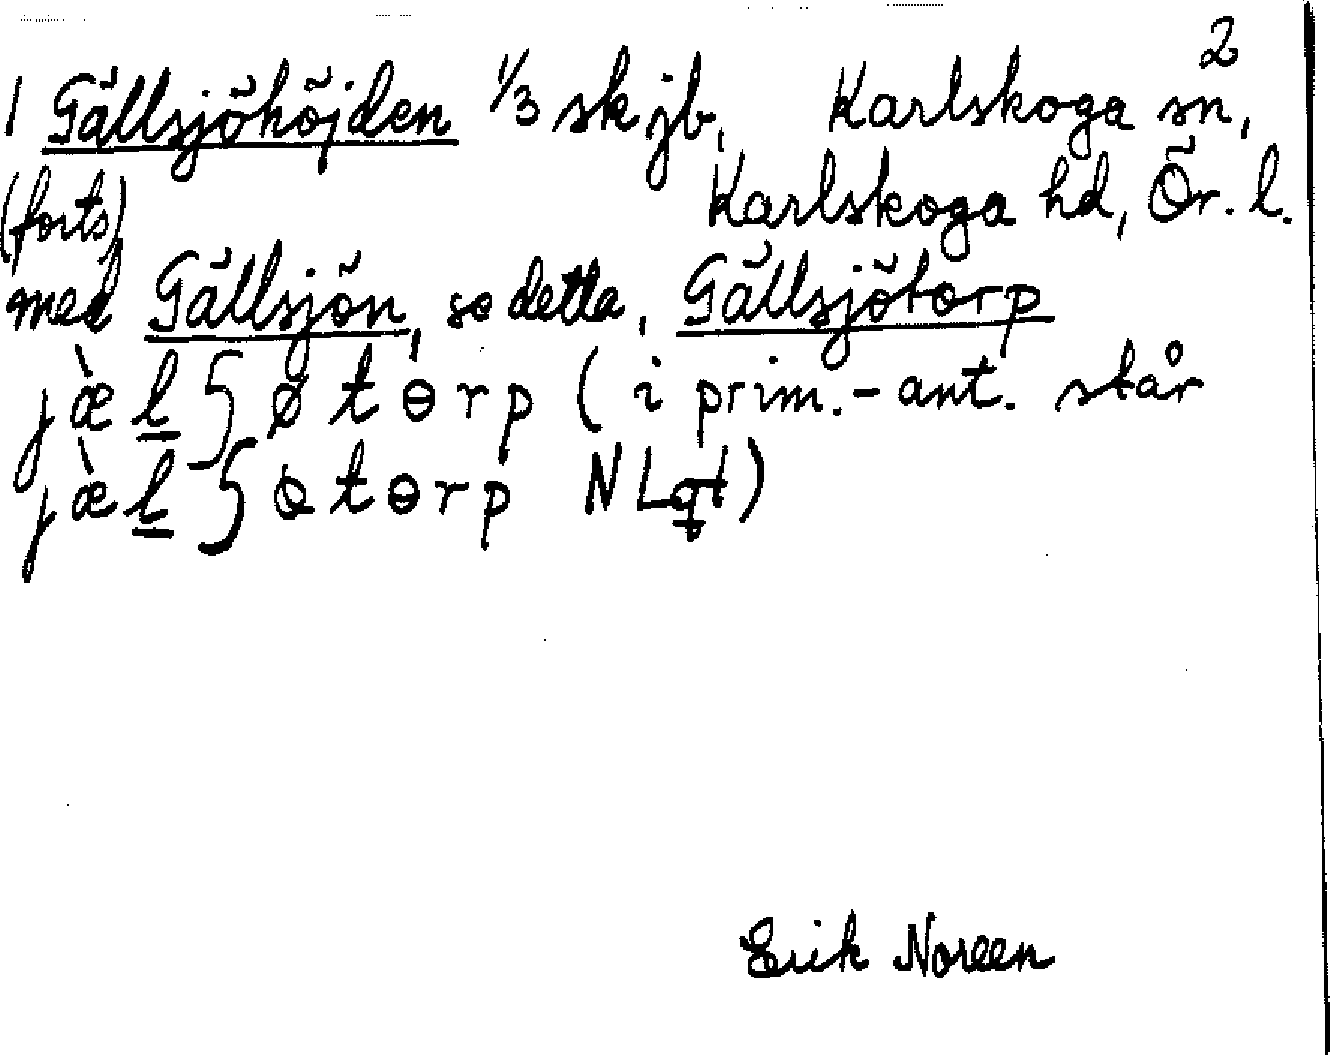 2
1 Gällsjöhöjden 1/3 sk jb, Karlskoga sn,
(forts) Karlskoga hd, Ör. l.
med Gällsjön, se detta, Gällsjötorp
jæ̀l̲ʃøtɵrp (i prim.-ant. står
jæ̀l̲ʃɵtɵrp N Lqt)
Erik Noreen